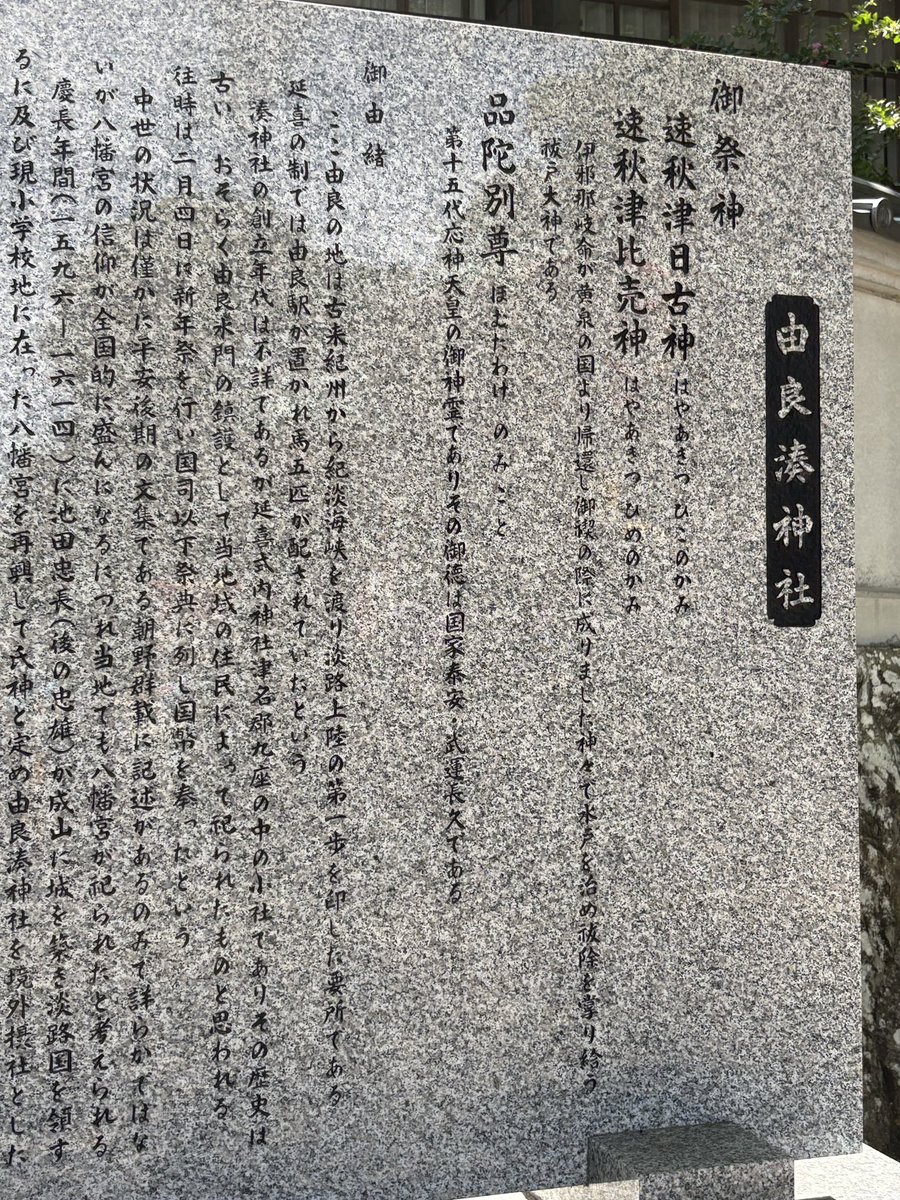 由良湊神社
御祭神
速秋津日古神 はやあきつひこのかみ
速秋津比売神 はやあきつひめのかみ
伊邪那岐命が黄泉の国より帰還し御禊の際に成りました神々で水戸を治め祓除を掌り給う
祓戸大神である
品陀別尊 ほむたわけのみこと
第十五代応神天皇の御神霊でありその御徳は国家泰安・武運長久である
御由緒
ここ由良の地は古来紀州から紀淡海峡を渡り淡路上陸の第一歩を印した要所である
延喜の制では由良駅が置かれ馬五匹が配されていたという
湊神社の創立年代は不詳であるが延喜式内神社津名郡九座の中の小社でありその歴史は
古い おそらく由良水門の鎮護として当地域の住民によって祀られたものと思われる
往時は二月四日に新年祭を行い国司以下祭典に列し国幣を奉ったという
中世の状況は僅かに平安後期の文集である朝野群載に記述があるのみで詳らかではな
いが八幡宮の信仰が全国的に盛んになるにつれ当地でも八幡宮が祀られたと考えられる
慶長年間(一五九六－一六一四)に池田忠長(後の忠雄)が成山に城を築き淡路国を領す
るに及び現小学校地に在った八幡宮を再興して氏神と定め由良湊神社を境外摂社とした